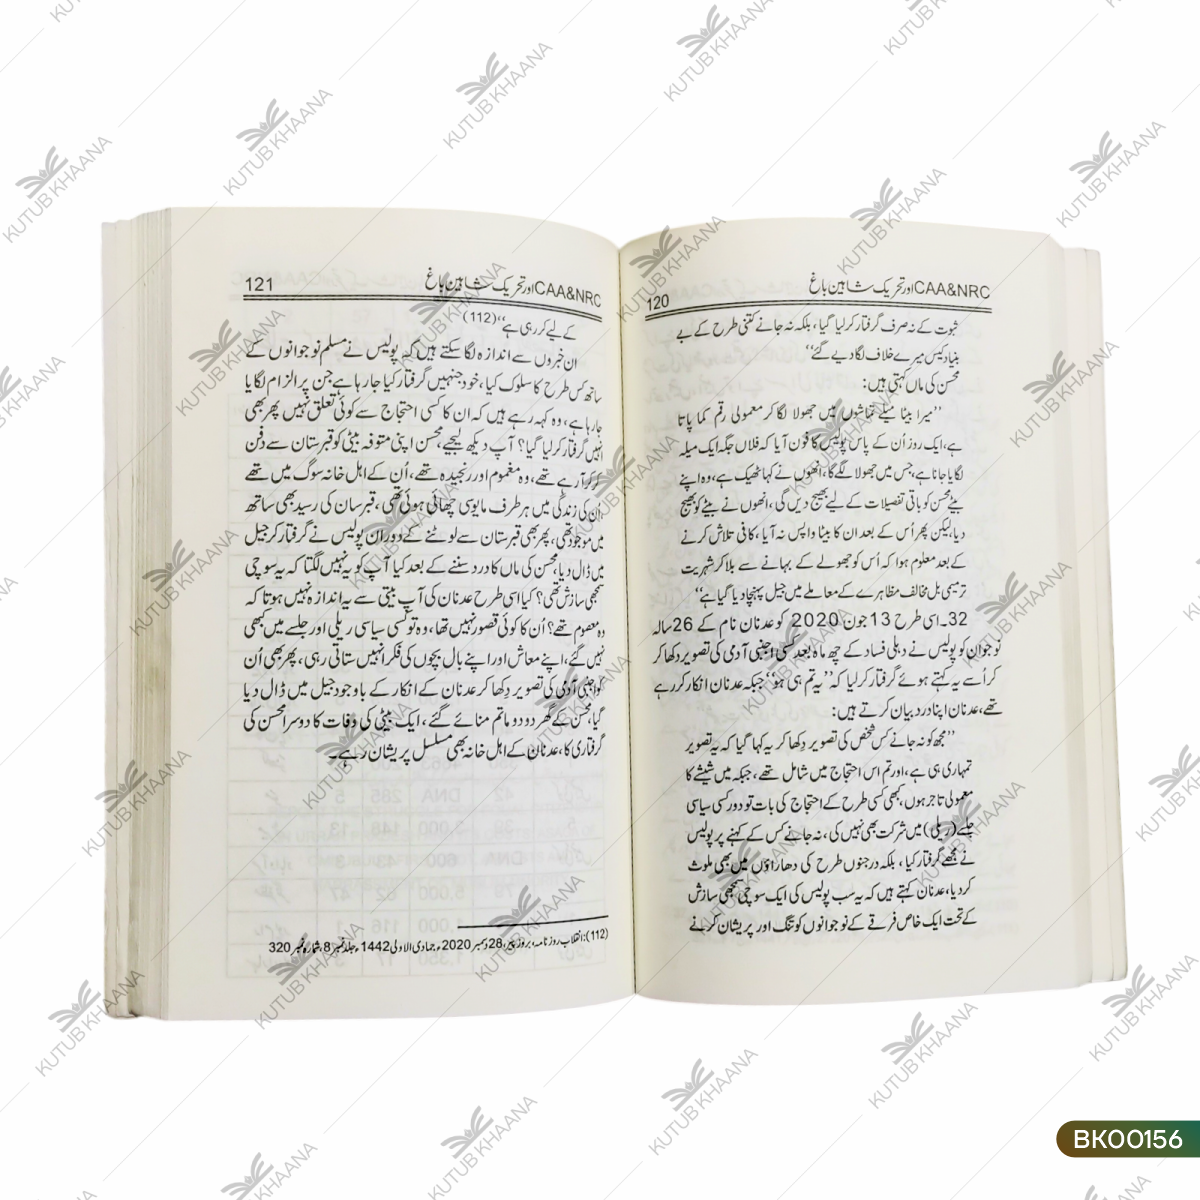 CAA&NRC اور تحریک شاہین باغ 120
ثبوت کے نہ صرف گرفتار کر لیا گیا، بلکہ نہ جانے کتنی طرح کے بے
بنیاد کیس میرے خلاف لگا دیے گئے‘‘
محسن کی ماں کہتی ہیں:
’’میرا بیٹا میلے تماشوں میں جھولا لگا کر معمولی رقم کما پاتا
ہے، ایک روز اُن کے پاس پولیس کا فون آیا کہ فلاں جگہ ایک میلہ
لگایا جانا ہے، جس میں جھولا لگے گا، انھوں نے کہا ٹھیک ہے، وہ اپنے
بیٹے محسن کو باقی تفصیلات کے لیے بھیج دیں گی، انھوں نے بیٹے کو بھیج
دیا، لیکن پھر اُس کے بعد ان کا بیٹا واپس نہ آیا، کافی تلاش کرنے
کے بعد معلوم ہوا کہ اُس کو جھولے کے بہانے سے بلا کر شہریت
ترمیمی بل مخالف مظاہرے کے معاملے میں جیل پہنچا دیا گیا ہے‘‘
32۔ اسی طرح 13 جون 2020 کو عدنان نام کے 26 سالہ
نوجوان کو پولیس نے دہلی فساد کے چھ ماہ بعد کسی اجنبی آدمی کی تصویر دکھا کر
کر اُسے یہ کہتے ہوئے گرفتار کر لیا کہ ’’یہ تم ہی ہو‘‘ جبکہ عدنان انکار کر رہے
تھے، عدنان اپنا درد بیان کرتے ہیں:
’’مجھ کو نہ جانے کس شخص کی تصویر دکھا کر یہ کہا گیا کہ یہ تصویر
تمہاری ہی ہے، اور تم اس احتجاج میں شامل تھے، جبکہ میں شیشے کا
معمولی تاجر ہوں، کبھی کسی طرح کے احتجاج کی بات تو دور کسی سیاسی
جلسے (ریلی) میں شرکت بھی نہیں کی، نہ جانے کس کے کہنے پر پولیس
نے مجھے گرفتار کیا، بلکہ درجنوں طرح کی دھاراؤں میں بھی ملوث
کر دیا، عدنان کہتے ہیں کہ یہ سب پولیس کی ایک سوچی سمجھی سازش
کے تحت ایک خاص فرقے کے نوجوانوں کو تنگ اور پریشان کرنے
CAA&NRC اور تحریک شاہین باغ 121
کے لیے کر رہی ہے‘‘(112)
ان خبروں سے اندازہ لگا سکتے ہیں کہ پولیس نے مسلم نوجوانوں کے
ساتھ کس طرح کا سلوک کیا، خود جنہیں گرفتار کیا جا رہا ہے جن پر الزام لگایا
جا رہا ہے، وہ کہہ رہے ہیں کہ ان کا کسی احتجاج سے کوئی تعلق نہیں پھر بھی
انہیں گرفتار کر لیا گیا؟ آپ دیکھ لیجیے، محسن اپنی متوفہ بیٹی کو قبرستان سے دفن
کر کر آ رہے تھے، وہ مغموم اور رنجیدہ تھے، اُن کے اہل خانہ سوگ میں تھے
اُن کی زندگی میں ہر طرف مایوسی چھائی ہوئی تھی، قبرستان کی رسید بھی ساتھ
میں موجود تھی، پھر بھی قبرستان سے لوٹنے کے دوران پولیس نے گرفتار کر جیل
میں ڈال دیا، محسن کی ماں کا درد سننے کے بعد کیا آپ کو یہ نہیں لگتا کہ یہ سوچی
سمجھی سازش تھی؟ کیا اسی طرح عدنان کی آپ بیتی سے یہ اندازہ نہیں ہوتا کہ
وہ معصوم تھے؟ اُن کا کوئی قصور نہیں تھا، وہ تو کسی سیاسی ریلی اور جلسے میں کبھی
نہیں گئے، اپنے معاش اور اپنے بال بچوں کی فکر انہیں ستاتی رہی، پھر بھی اُن
کو اجنبی آدمی کی تصویر دکھا کر عدنان کے انکار کے باوجود جیل میں ڈال دیا
گیا، محسن کے گھر دو دو ماتم منائے گئے، ایک بیٹی کی وفات کا دوسرا محسن کی
گرفتاری کا، عدنان کے اہل خانہ بھی مسلسل پریشان رہے۔
(112): انقلاب روزنامہ، بروز پیر، 28 دسمبر 2020ء، جمادی الاولی 1442ء، جلد نمبر 8، شمارہ نمبر 320
KUTUB KHAANA
BK00156